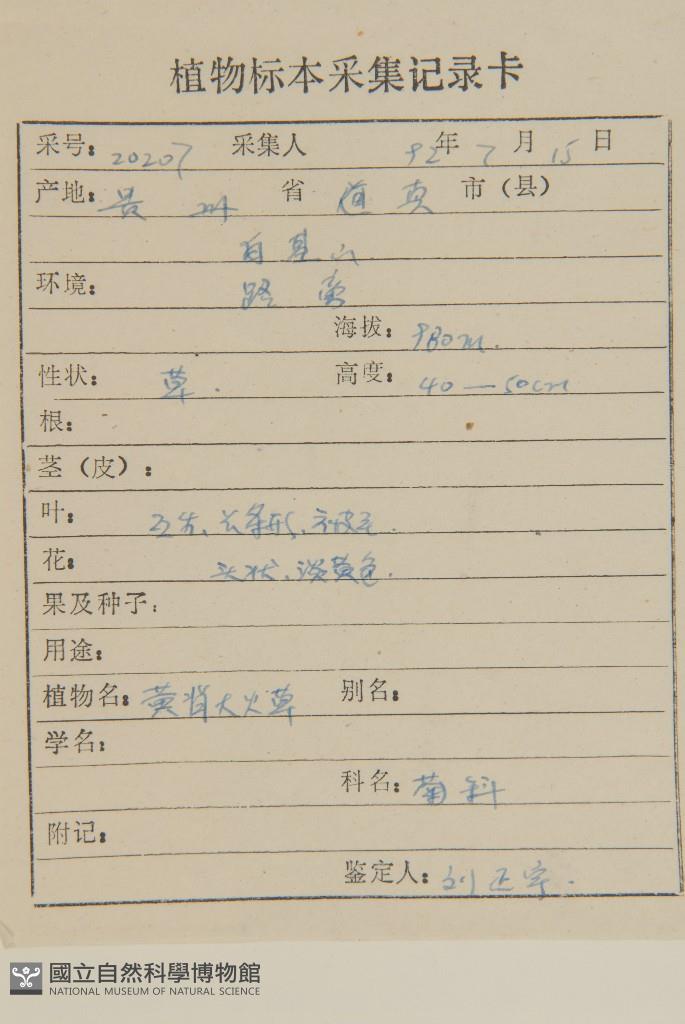 植物标本采集记录卡
采号：20207 采集人 92年7月15日
产地：贵州省道真市（县）
自基山
环境：路旁
海拔：980m.
性状：草. 高度：40—50cm
根：
茎（皮）：
叶：互生、长条形、被毛.
花：头状、淡黄色.
果及种子：
用途：
植物名：黄背大火草 别名：
学名：
科名：菊科
附记：
鉴定人：刘正宇.
國立自然科學博物館
NATIONAL MUSEUM OF NATURAL SCIENCE